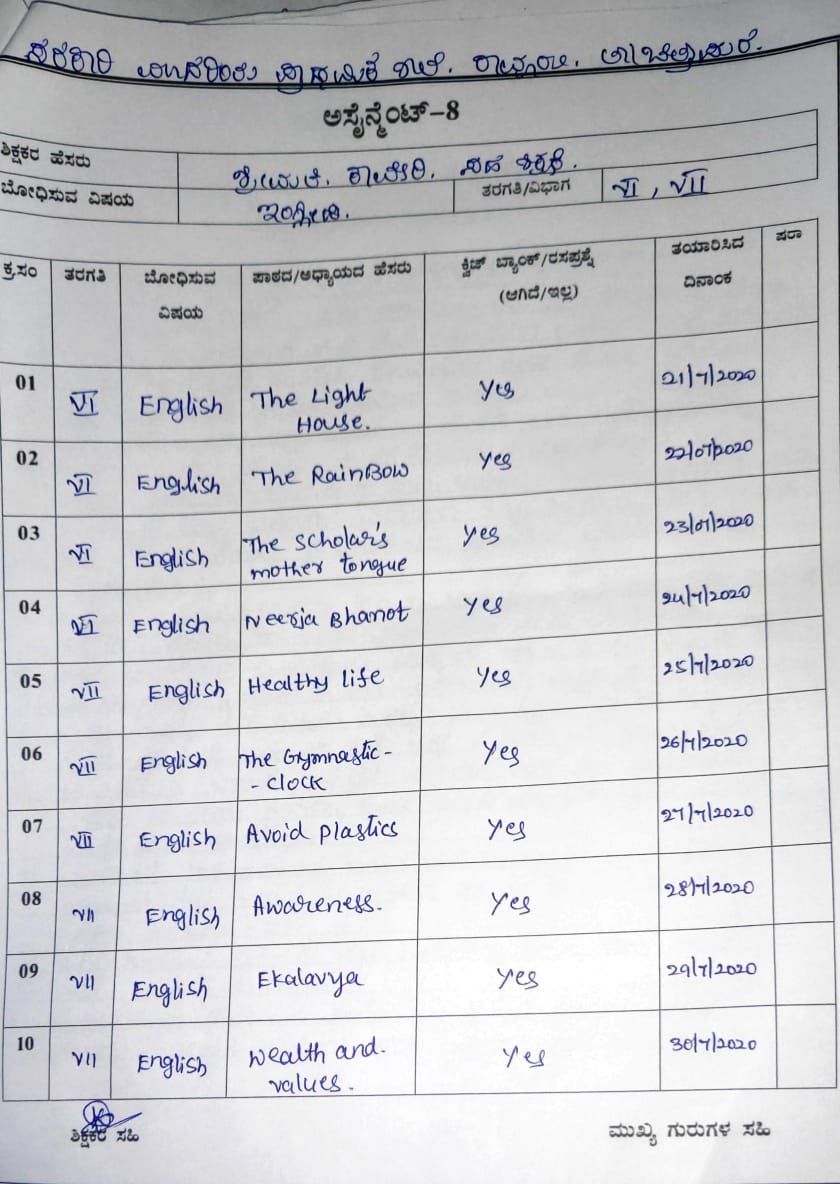 ಸರಕಾರಿ ಮಾದರಿಯ ಪ್ರಾಥಮಿಕ ಶಾಲೆ.
ಅಸೈನ್ಮೆಂಟ್-8
ಶಿಕ್ಷಕರ ಹೆಸರು ಶ್ರೀಮತಿ. ಕಾವೇರಿ. ಸಹ ಶಿಕ್ಷಕಿ.
ಬೋಧಿಸುವ ವಿಷಯ ಇಂಗ್ಲೀಷ. ತರಗತಿ/ವಿಭಾಗ VI, VII
ಕ್ರ.ಸಂ ತರಗತಿ ಬೋಧಿಸುವ ವಿಷಯ ಪಾಠದ/ಅಧ್ಯಾಯದ ಹೆಸರು ಕ್ವಿಜ್ ಬ್ಯಾಂಕ್/ರಸಪ್ರಶ್ನೆ (ಆಗಿದೆ/ಇಲ್ಲ) ತಯಾರಿಸಿದ ದಿನಾಂಕ ಷರಾ
01 VI English The Light House. Yes 21/7/2020
02 VI English The RainBow Yes 22/07/2020
03 VI English The scholar's mother tongue Yes 23/07/2020
04 VI English Neerja Bhanot Yes 24/7/2020
05 VII English Healthy life Yes 25/7/2020
06 VII English The Gymnastic - - clock Yes 26/7/2020
07 VII English Avoid plastics Yes 27/7/2020
08 VII English Awareness. Yes 28/7/2020
09 VII English Ekalavya Yes 29/7/2020
10 VII English Wealth and. values. Yes 30/7/2020
ಶಿಕ್ಷಕರ ಸಹಿ ಮುಖ್ಯ ಗುರುಗಳ ಸಹಿ